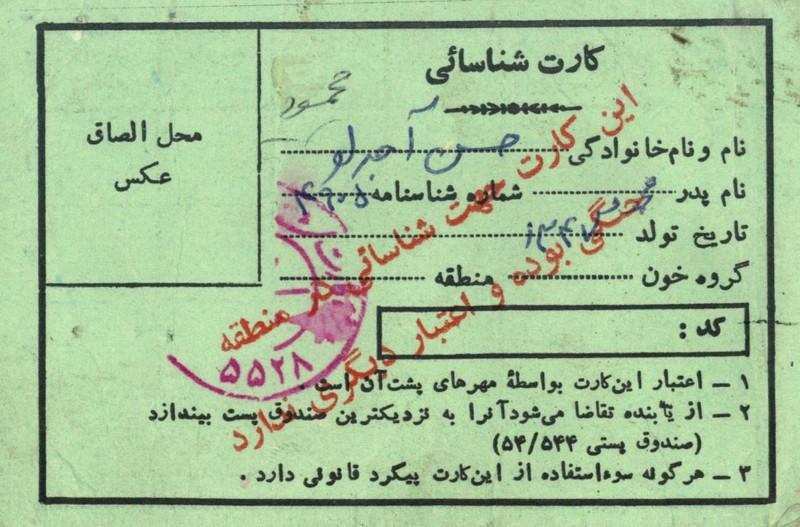 کارت شناسائی
محل الصاق
عکس
محمود
نام و نام خانوادگی حسن آجرلو
نام پدر شماره شناسنامه
تاریخ تولد
گروه خون منطقه
کد :
۱ ـ اعتبار این کارت بواسطهٔ مهرهای پشت آن است .
۲ ـ از یابنده تقاضا می‌شود آنرا به نزدیکترین صندوق پست بیندازد
(صندوق پستی ۵۴/۵۴۴)
۳ ـ هرگونه سوءاستفاده از این کارت پیگرد قانونی دارد .
این کارت جهت شناسائی در منطقه
جنگی بوده و اعتبار دیگری ندارد
۵۵۲۸